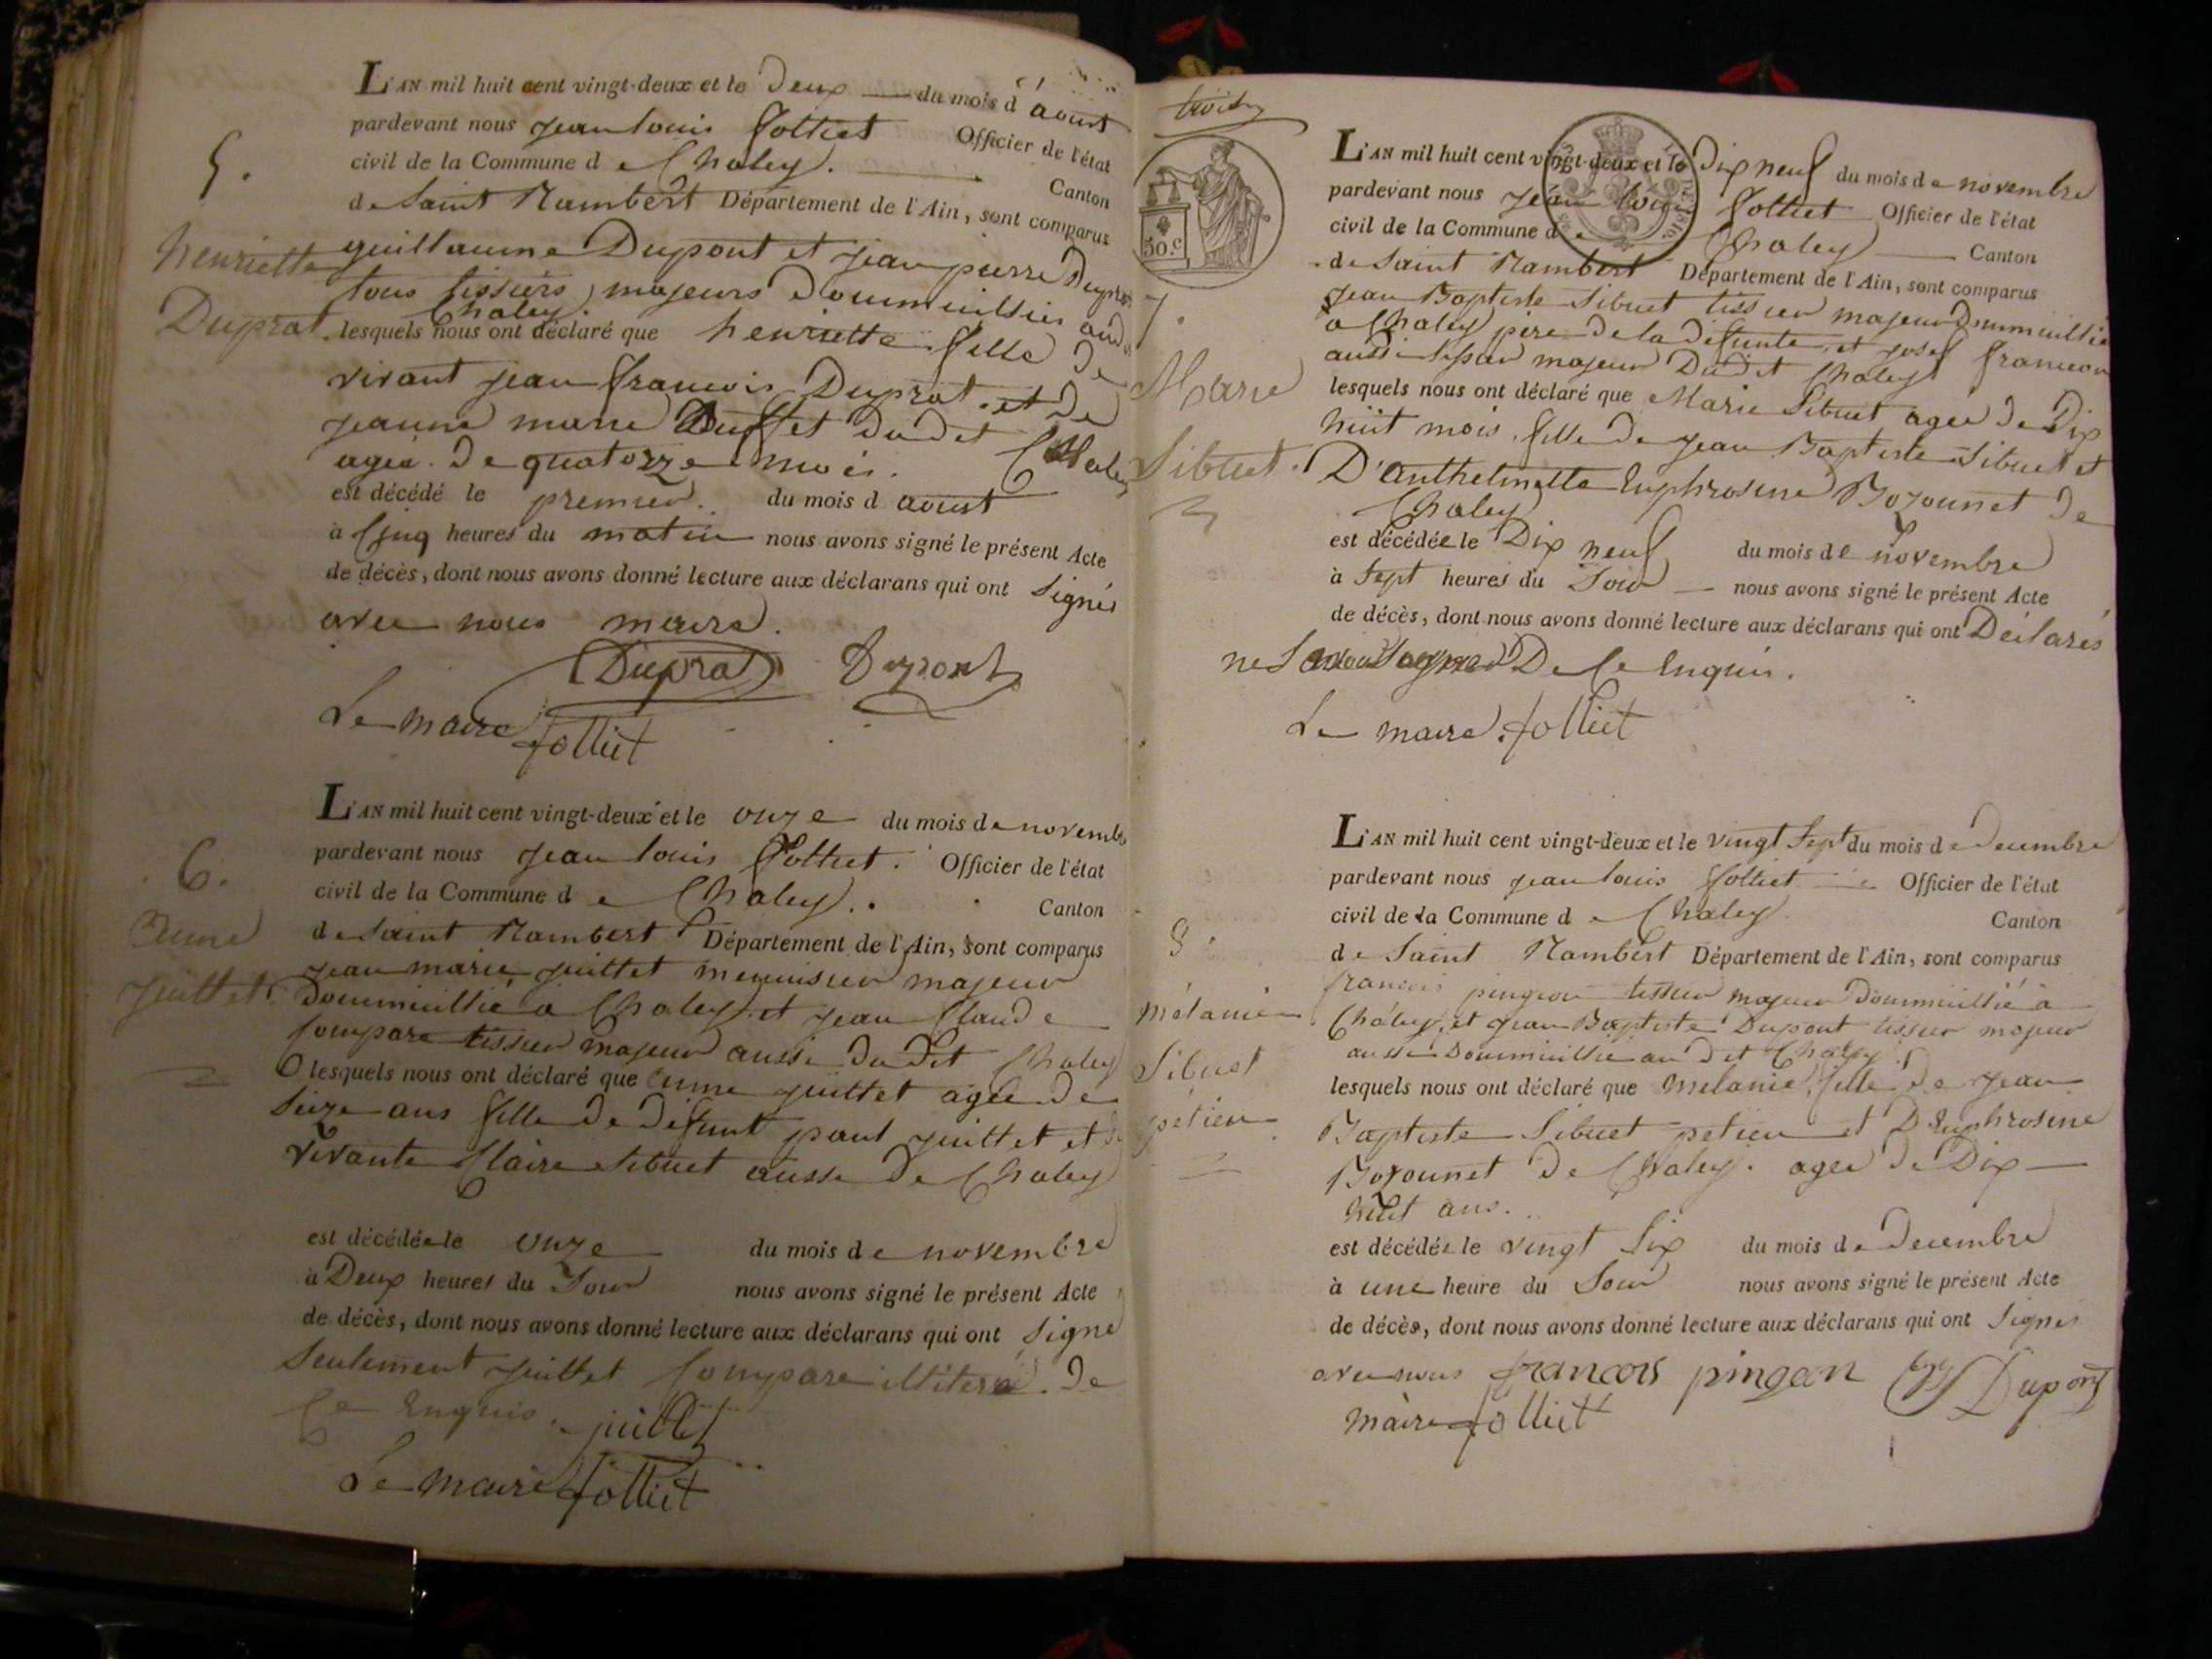 L'AN mil huit cent vingt-deux et le Deux du mois d'aoust
pardevant nous jean louis Jolliet Officier de l'état
civil de la Commune de Chaley. Canton
de Saint Rambert Département de l'Ain, sont comparus
5.
guillaume Dupont et jean pierre Duprat
henriette
tous tissiers, majeurs Doumiuillies audit
Chaley.
Duprat. lesquels nous ont déclaré que henriette fille De
vivant jean francois Duprat. et De
jeanne marie Buffet dudit Chaley
agée. De quatorzze mois.
est décédé le premier. du mois d aoust
à Cinq heures du matin nous avons signé le présent Acte
de décès, dont nous avons donné lecture aux déclarans qui ont Signés
avec nous maire.
Duprat Dupont
Le maire Jolliet
L'AN mil huit cent vingt-deux et le onze du mois de novembre
pardevant nous jean louis Jolliet. Officier de l'état
6.
civil de la Commune de Chaley. Canton
de Saint Rambert Département de l'Ain, sont comparus
jean marie juillet menuisier majeur
juillet. Doumiuillié a Chaley. et jean Claude
Compare tissier majeur aussi Dudit Chaley
lesquels nous ont déclaré que juillet agée De
Seize ans fille De Defunt paul juillet et De
vivante Claire Sibuet aussi De Chaley
est décédée le onze du mois de novembre
à Deux heures du Soir nous avons signé le présent Acte
de décès, dont nous avons donné lecture aux déclarans qui ont Signé
Seulement juillet Compare illiteré. De
Ce Enquis. juillet
Le maire Jolliet
50.c
L'AN mil huit cent vingt-deux et le Dix neuf du mois de novembre
pardevant nous jean louis Jolliet Officier de l'état
civil de la Commune de Chaley Canton
de Saint Rambert Département de l'Ain, sont comparus
7.
jean Baptiste Sibuet tissier majeur Doumiuillié
a Chaley père de la Defunte, et josef francon
aussi tissier majeur Dudit Chaley
Marie
lesquels nous ont déclaré que Marie Sibuet agée De Dix
huit mois, fille De jean Baptiste Sibuet et
Sibuet.
D'anthelmette Euphrosine Bozonnet De
Chaley
est décédée le Dix neuf du mois de novembre
à Sept heures du Soir nous avons signé le présent Acte
de décès, dont nous avons donné lecture aux déclarans qui ont Déclarés
ne De Ce Enquis.
Le maire. Jolliet
L'AN mil huit cent vingt-deux et le vingt Sept du mois de Decembre
pardevant nous jean louis Jolliet Officier de l'état
civil de la Commune de Chaley. Canton
8.
de Saint Rambert Département de l'Ain, sont comparus
francois pingeon tissier majeur Doumiuillié a
mélanie
Chaley, et jean Baptiste Dupont tissier majeur
aussi Doumiuillié audit Chaley.
Sibuet
lesquels nous ont déclaré que mélanie fille De jean
pétieu
Baptiste Sibuet petieu et D'Euphrosine
Bozonnet De Chaley. agée De Dix
huit ans.
est décédée le vingt Six du mois de Decembre
à une heure du Soir nous avons signé le présent Acte
de décès, dont nous avons donné lecture aux déclarans qui ont Signés
avec nous francois pingeon Dupont
maire Jolliet